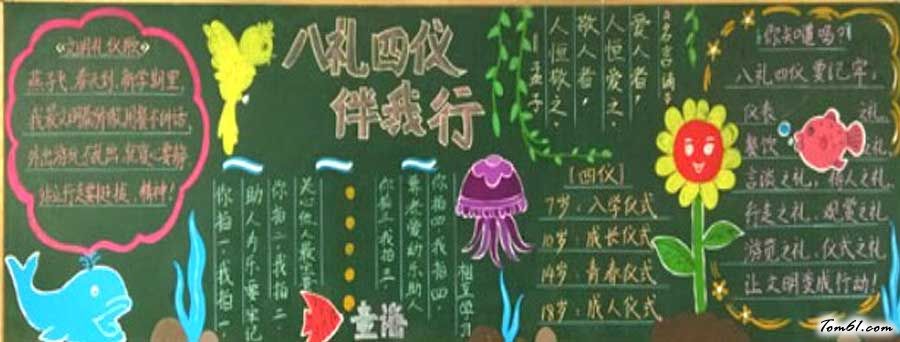 《文明礼仪歌》
燕子飞，春天到，新学期里
八礼四仪
伴我行
你拍一，我拍一
助人为乐要牢记
你拍二，我拍二
你拍三，我拍三
你拍四，我拍四
童海
《名言诵》
爱人者，
人恒爱之，
敬人者，
人恒敬之。
——孟子
[四仪]
7岁：入学仪式
10岁：成长仪式
14岁：青春仪式
18岁：成人仪式
你知道吗？
八礼四仪要记牢：
仪表之礼
餐饮之礼
言谈之礼，待人之礼
行走之礼、观赏之礼
游览之礼、仪式之礼
让文明变成行动！
Tom61.com